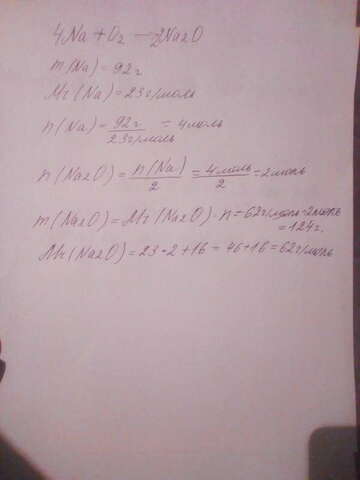 4Na + O2 — 2Na2O
m(Na) = 92г
Mr(Na) = 23г/моль
n(Na) = 92г / 23г/моль = 4моль
n(Na2O) = n(Na) / 2 = 4моль / 2 = 2моль
m(Na2O) = Mr(Na2O) · n = 62г/моль · 2моль
= 124г.
Mr(Na2O) = 23 · 2 + 16 = 46 + 16 = 62г/моль